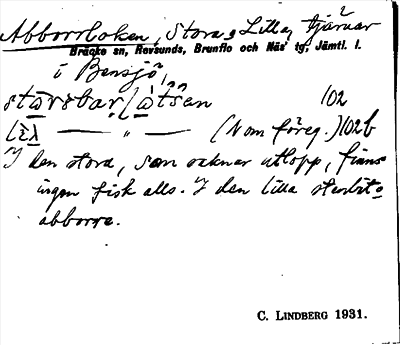 Abborrloken, Stora o Lilla, tjärnar
Bräcke sn, Revsunds, Brunflo och Näs' tg, Jämtl. l.
i Bensjö,
102
(Nom föreg.) 102b
I den stora, som saknar utlopp, finns
ingen fisk alls. I den lilla
abborre.
C. LINDBERG 1931.